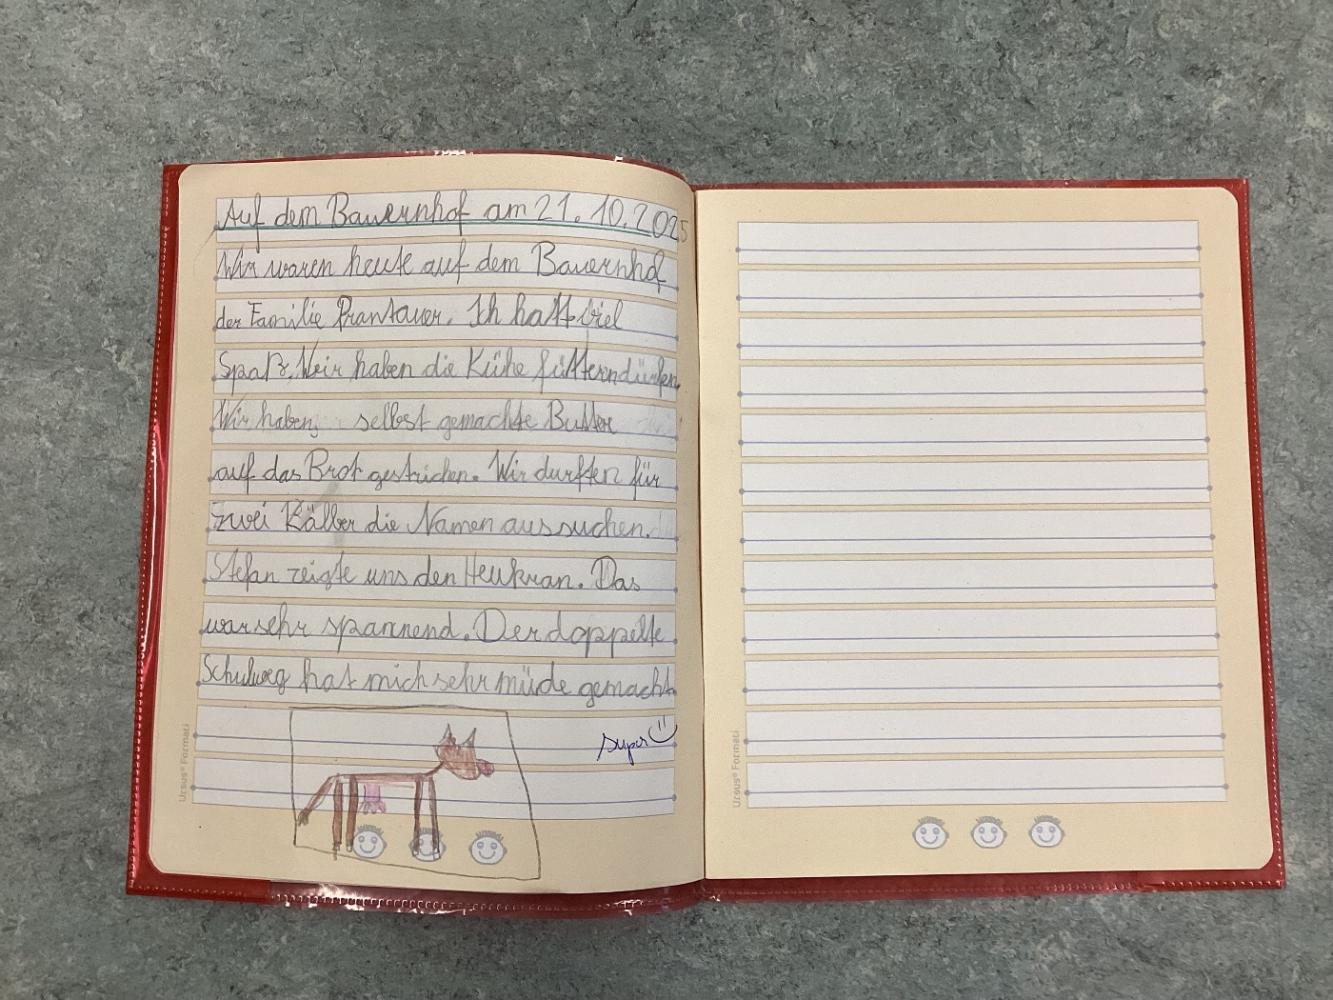 Auf dem Bauernhof am 21.10.2025
Wir waren heute auf dem Bauernhof
der Familie Prantauer. Ich hatt viel
Spaß. Wir haben die Kühe fütterndürfen.
Wir haben selbst gemachte Butter
auf das Brot gestrichen. Wir durften für
zwei Kälber die Namen aussuchen.
Stefan zeigte uns den Heukran. Das
war sehr spannend. Der doppelte
Schulweg hat mich sehr müde gemacht
super
Ursus® Formati
Ursus® Formati